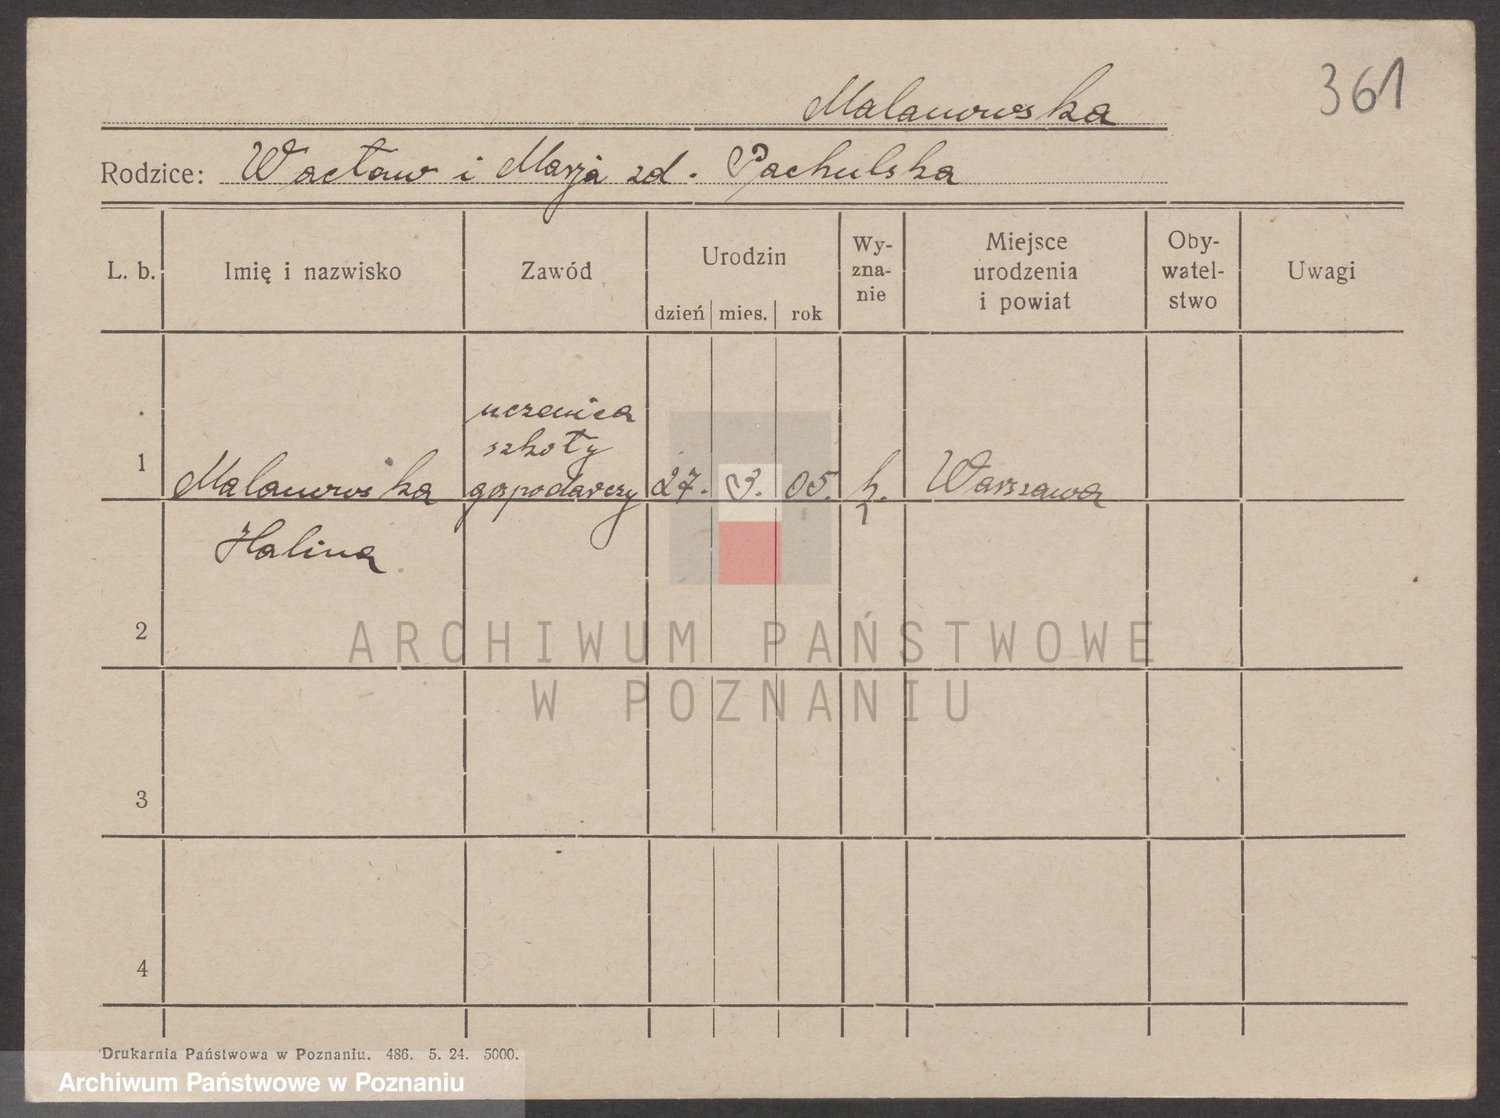 361
Malanowska
Rodzice: Wacław i Marja zd. Pachulska
L. b.
Imię i nazwisko
Zawód
Urodzin
dzień mies. rok
Wy-
zna-
nie
Miejsce
urodzenia
i powiat
Oby-
watel-
stwo
Uwagi
1
Malanowska
Halina
uczenica
szkoły
gospodarczy
27. 3. 05.
k.
Warszawa
2
3
4
ARCHIWUM PAŃSTWOWE
W POZNANIU
Drukarnia Państwowa w Poznaniu. 486. 5. 24. 5000.
Archiwum Państwowe w Poznaniu